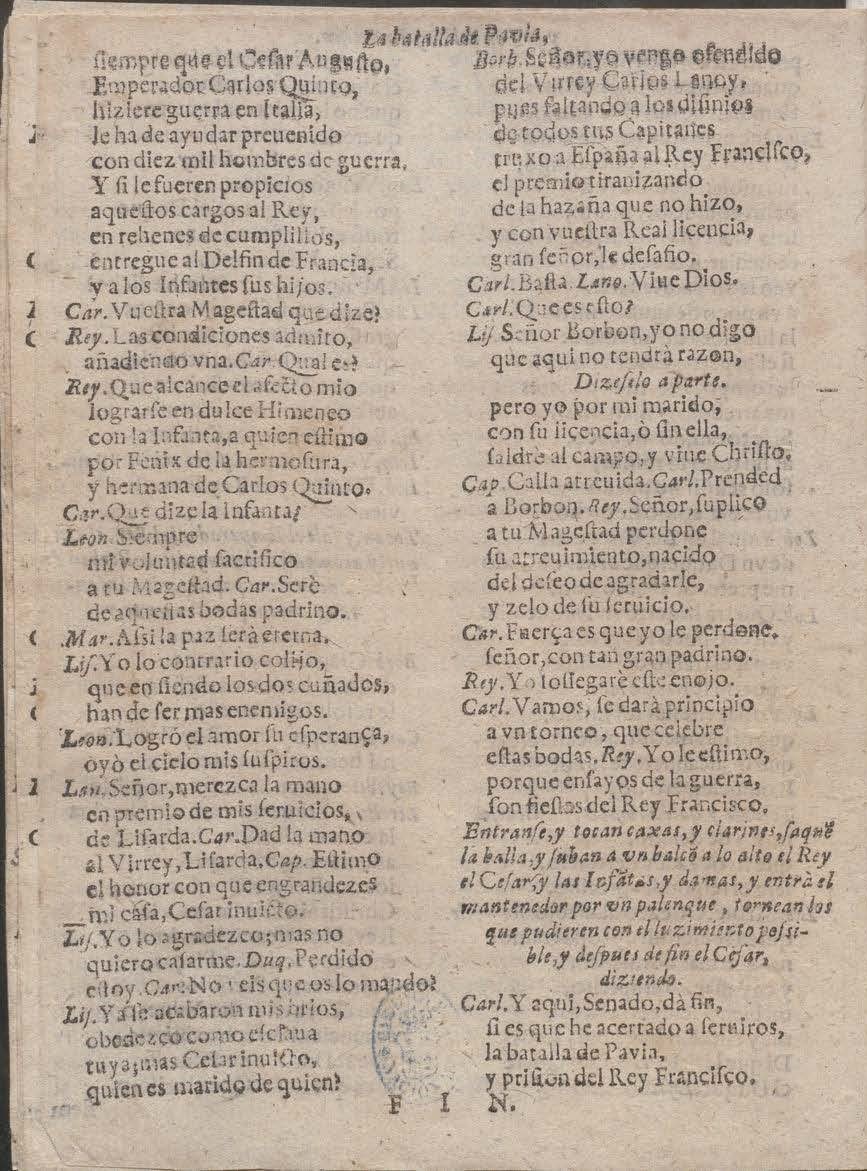 La batalla de Pavia,
siempre que el Cesar Augusto,
Emperador Carlos Quinto,
hiziere guerra en Italia,
le ha de ayudar preuenido
con diez mil hombres de guerra.
Y si le fueren propicios
aquestos cargos al Rey,
en rehenes de cumplillos,
entregue al Delfin de Francia,
y a los Infantes sus hijos.
Car. Vuestra Magestad que dize?
Rey. Las condiciones admito,
añadiendo vna. Car. Qual es?
Rey. Que alcance el afecto mio
lograrse en dulce Himeneo
con la Infanta, a quien estimo
por Fenix de la hermosura,
y hermana de Carlos Quinto.
Car. Que dize la Infanta?
Leon. Siempre
mi voluntad sacrifico
a tu Magestad. Car. Serè
de aquestas bodas padrino.
Mar. Assi la paz serà eterna.
Lis. Yo lo contrario colijo,
que en siendo los dos cuñados,
han de ser mas enemigos.
Leon. Logró el amor su esperança,
oyò el cielo mis suspiros.
Lan. Señor, merezca la mano
en premio de mis seruicios,
de Lisarda. Car. Dad la mano
al Virrey, Lisarda. Cap. Estimo
el honor con que engrandezes
mi casa, Cesar inuicto.
Lis. Yo lo agradezco; mas no
quiero casarme. Duq. Perdido
estoy. Car. No veis que os lo mando?
Lis. Ya se acabaron mis brios,
obedezco como esclaua
tuya; mas Cesar inuicto,
quien es marido de quien?
Borb. Señor, yo vengo ofendido
del Virrey Carlos Lanoy,
pues faltando a los disinios
de todos tus Capitanes
truxo a España al Rey Francisco,
el premio tiranizando
de la hazaña que no hizo,
y con vuestra Real licencia,
gran señor, le desafio.
Carl. Basta. Lano. Viue Dios.
Carl. Que es esto?
Lis. Señor Borbon, yo no digo
que aqui no tendrà razon,
Dizeselo a parte.
pero yo por mi marido,
con su licencia, ò sin ella,
saldrè al campo, y viue Christo.
Cap. Calla atreuida. Carl. Prended
a Borbon. Rey. Señor, suplico
a tu Magestad perdone
su atreuimiento, nacido
del deseo de agradarle,
y zelo de su seruicio.
Car. Fuerça es que yo le perdone,
señor, con tan gran padrino.
Rey. Yo sossegarè este enojo.
Carl. Vamos, se darà principio
a vn torneo, que celebre
estas bodas. Rey. Yo le estimo,
porque ensayos de la guerra,
son fiestas del Rey Francisco.
Entranse, y tocan caxas, y clarines, saquẽ
la balla, y suban a vn balcõ a lo alto el Rey
el Cesar, y las Infãtas, y damas, y entrà el
mantenedor por vn palenque, tornean los
que pudieren con el luzimiento possi-
ble, y despues de fin el Cesar,
diziendo.
Carl. Y aqui, Senado, dà fin,
si es que he acertado a seruiros,
la batalla de Pavia,
y prision del Rey Francisco.
F I N.